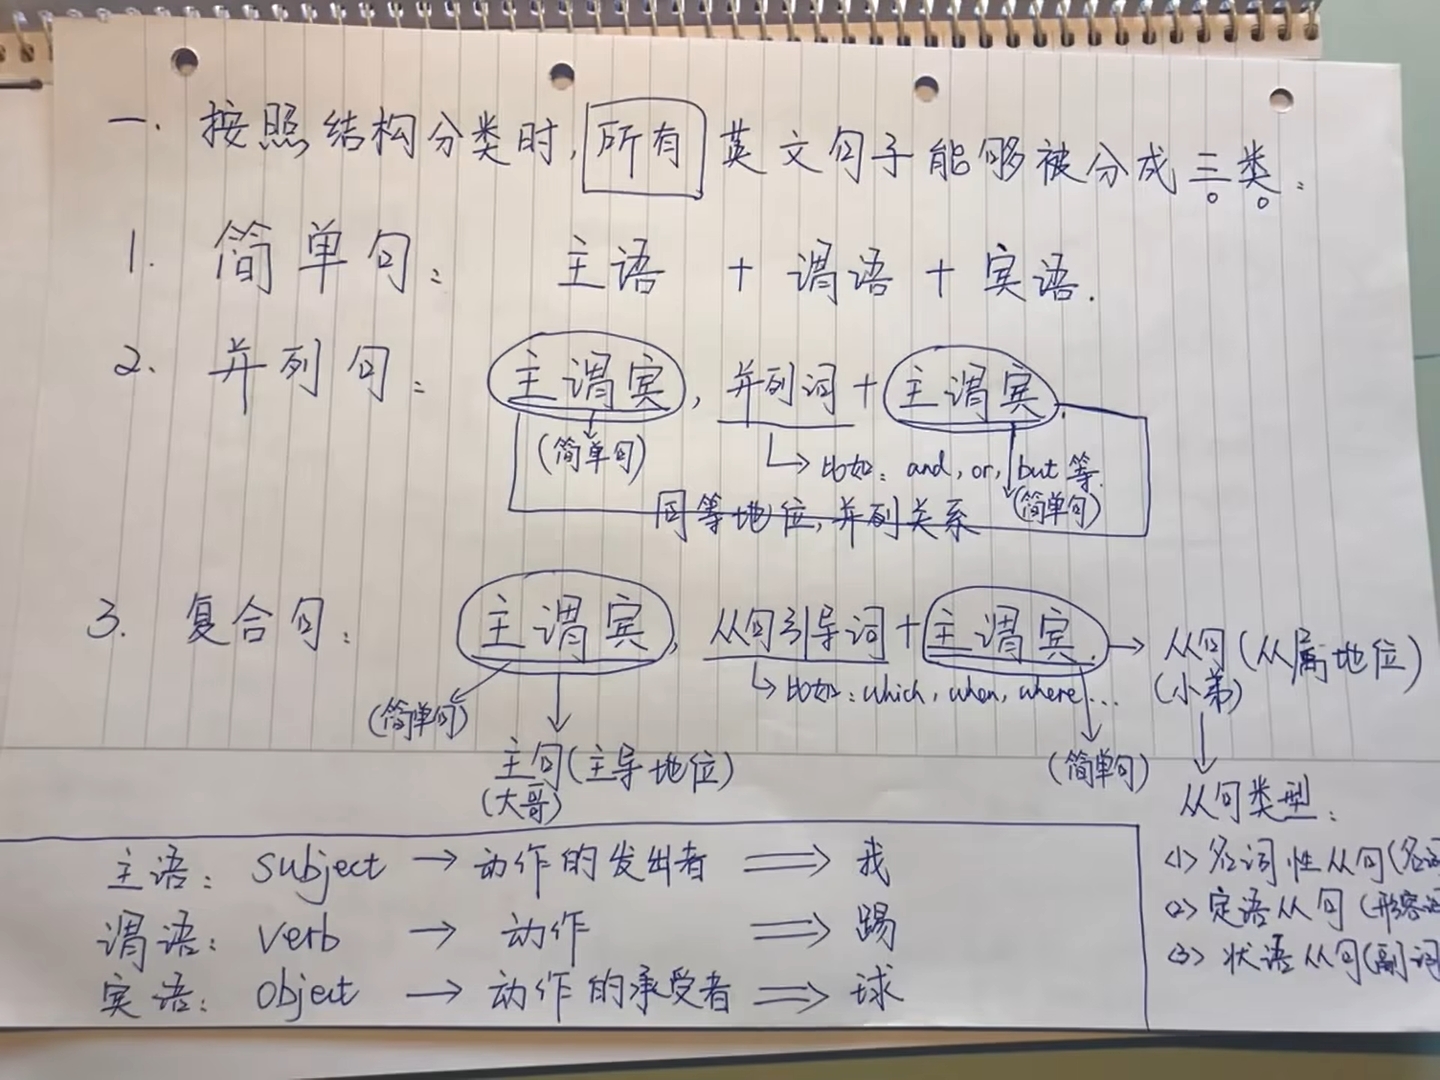 一. 按照结构分类时, 所有 英文句子能够被分成三类:
1. 简单句: 主语 + 谓语 + 宾语.
2. 并列句: 主谓宾, 并列词 + 主谓宾.
(简单句) 比如: and, or, but 等.
(简单句)
同等地位, 并列关系
3. 复合句: 主谓宾, 从句引导词 + 主谓宾. → 从句 (从属地位)
(小弟)
比如: which, when, where...
(简单句)
主句 (主导地位)
(大哥)
(简单句)
从句类型:
<1> 名词性从句(名词
<2> 定语从句 (形容词
<3> 状语从句(副词
主语: subject → 动作的发出者 ⇒ 我
谓语: verb → 动作 ⇒ 踢
宾语: object → 动作的承受者 ⇒ 球